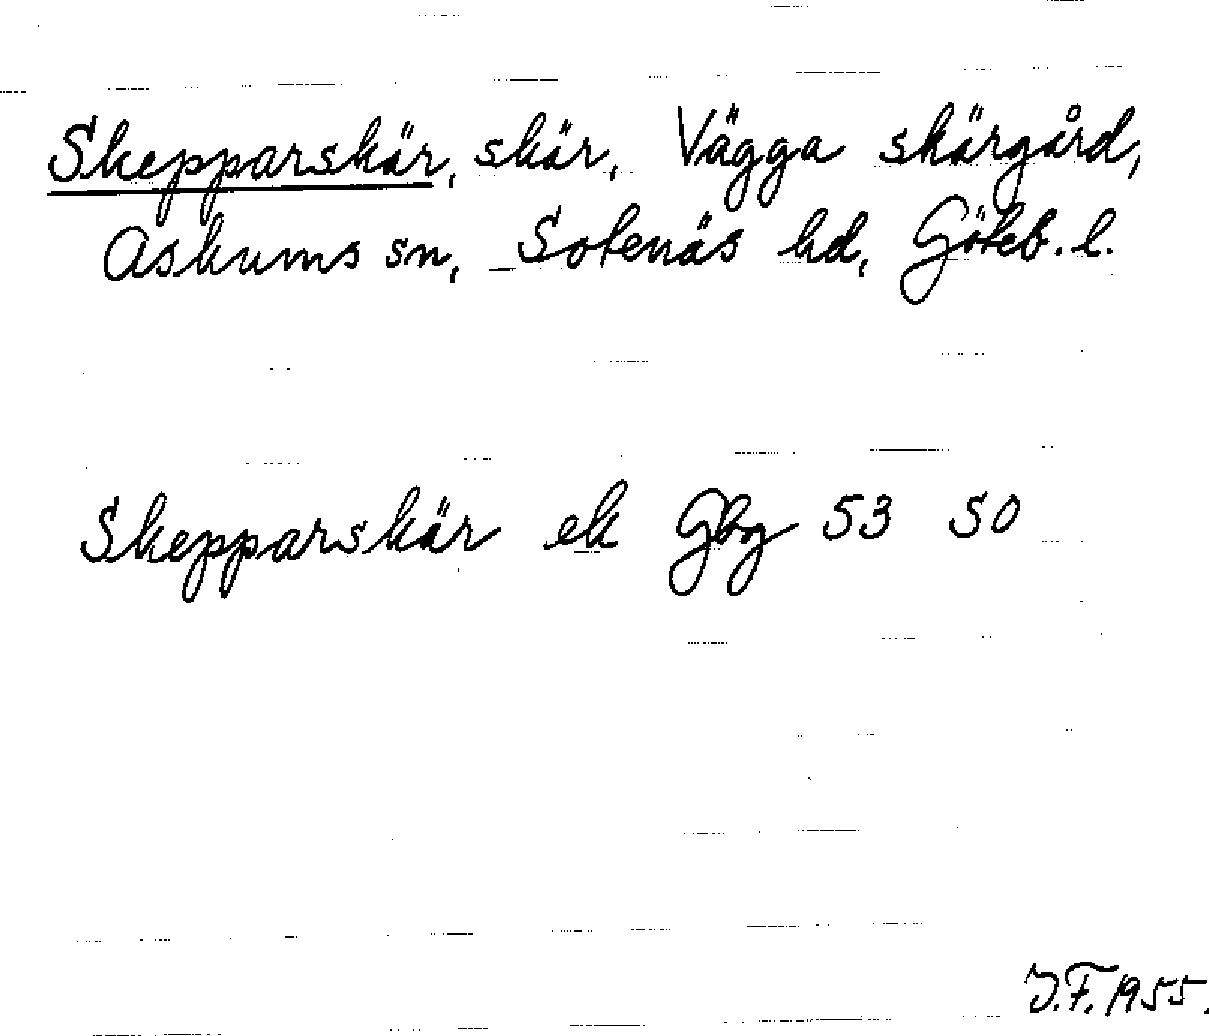 Skepparskär, skär, Vägga skärgård,
Askums sn, Sotenäs hd, Göteb. l.
Skepparskär ek Gbg 53 SO
J.F. 1955.